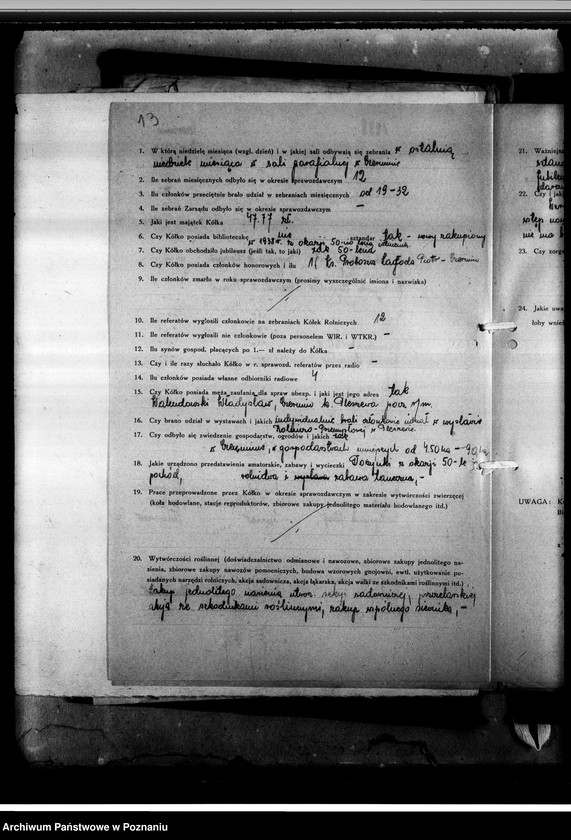 13
1. W którą niedzielę miesiąca (wzgl. dzień) i w jakiej sali odbywają się zebrania w ostatnią
niedzielę miesiąca w sali parafialnej w
2. Ile zebrań miesięcznych odbyło się w okresie sprawozdawczym 12
3. Ilu członków przeciętnie brało udział w zebraniach miesięcznych od 19-32
4. Ile zebrań Zarządu odbyło się w okresie sprawozdawczym —
5. Jaki jest majątek Kółka 47.77 zł.
6. Czy Kółko posiada biblioteczkę nie sztandar tak - nowy zakupiony
w 1938 r. z okazji 50-
7. Czy Kółko obchodziło jubileusz (jeśli tak, to jaki) tak 50-lecia
8. Czy Kółko posiada członków honorowych i ilu Łagoda Piotr -
9. Ilu członków zmarło w roku sprawozdawczym (prosimy wyszczególnić imiona i nazwiska)
10. Ile referatów wygłosili członkowie na zebraniach Kółek Rolniczych 12
11. Ile referatów wygłosili nie członkowie (poza personelem WIR. i WTKR.) —
12. Ilu synów gospod. płacących po 1.— zł należy do Kółka —
13. Czy i ile razy słuchało Kółko w r. sprawozd. referatów przez radio —
14. Ilu członków posiada własne odbiorniki radiowe 4
15. Czy Kółko posiada męża zaufania dla spraw ubezp. i jaki jest jego adres tak
Władysław, p. Pleszewa pow. m/m.
16. Czy brano udział w wystawach i jakich indywidualnie brali członkowie udział w wystawie
Rolniczo-Przemysłowej w Pleszewie.
17. Czy odbyło się zwiedzenie gospodarstw, ogrodów i jakich tak
w gospodarstwach od 4.50 ha - 9
18. Jakie urządzono przedstawienia amatorskie, zabawy i wycieczki Dożynki z okazji 50-le
pochód, i wystawa zabawa taneczna,-
19. Prace przeprowadzone przez Kółko w okresie sprawozdawczym w zakresie wytwórczości zwierzęcej
(koła hodowlane, stacje reproduktorów, zbiorowe zakupy jednolitego materiału hodowlanego itd.)
20. Wytwórczości roślinnej (doświadczalnictwo odmianowe i nawozowe, zbiorowe zakupy jednolitego na-
sienia, zbiorowe zakupy nawozów pomocniczych, budowa wzorowych gnojowni, ewtl. użytkowanie po-
siadanych narzędzi rolniczych, akcja sadownicza, akcja łąkarska, akcja walki ze szkodnikami roślinnymi itd.)
Zakup jednolitego nasienia utwor. sekcji sadowniczej, pszczelarskiej
akcja ze szkodnikami roślinnymi, zakup wspólnego siewnika,-
21. Ważniejsz
22. Czy i jak
23. Czy zorg
24. Jakie uwa
łoby wnie
UWAGA: K
Archiwum Państwowe w Poznaniu